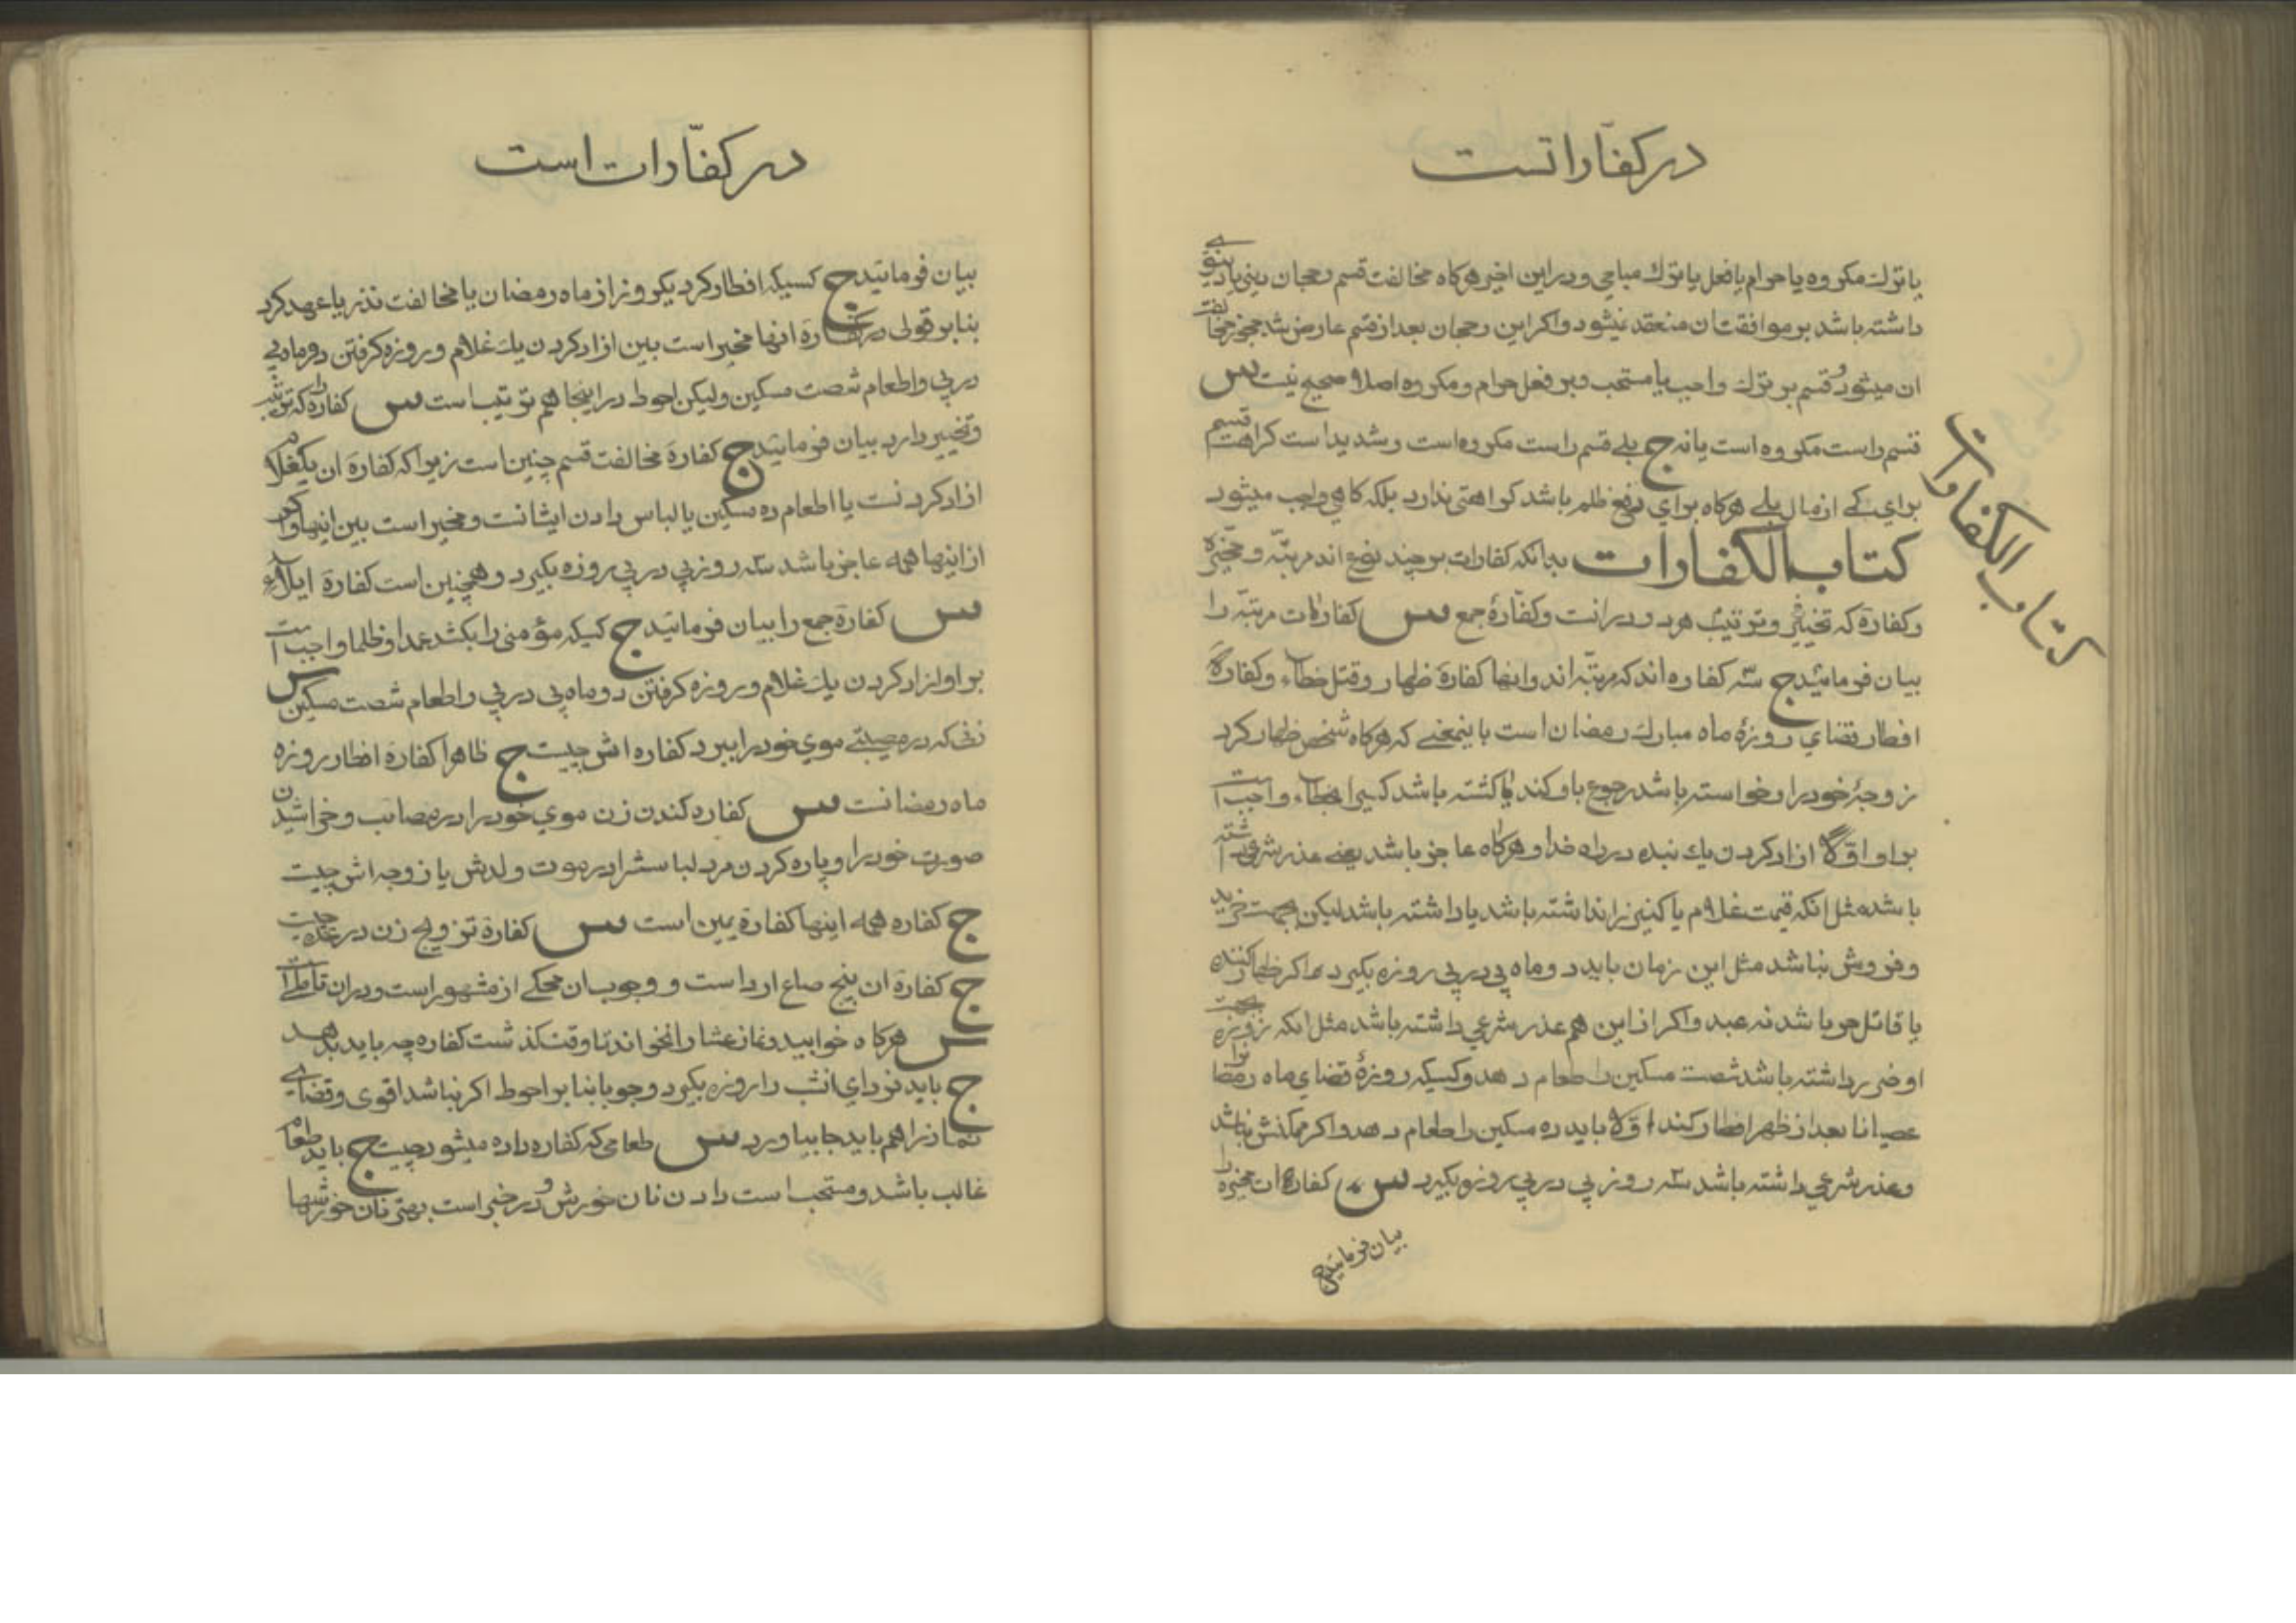 در کفّاراتست
یا ترك مکروه یا حرام یا فعل یا ترك مباحی و در این اخیر هرکاه مخالفت قسم رجحان دینی یا دنیوی
داشته باشد بر موافقت ان منعقد نمیشود و اکر این رجحان بعد از قسم عارض شد مجوز مخالفت
ان میشود و قسم بر ترك واجب یا مستحب و بر فعل حرام و مکروه اصلا صحیح نیست س
قسم راست مکروه است یا نه ج بلے قسم راست مکروه است و شدید است کراهت قسم
برای کے از مال بلے هرکاه برای دفع ظلم باشد کراهتی ندارد بلکه کاهی واجب میشود
کتاب الکفارات بدانکه کفارات بر چند نوع اند مرتبّه و مخیّره
و کفارهٔ که تخییر و ترتیب هر دو در انست و کفّارهٔ جمع س کفارات مرتبّه را
بیان فرمائید ج سه کفاره اند که مرتبّه اند و انها کفارهٔ ظهار و قتل خطاء و کفارهٔ
افطار قضای روزهٔ ماه مبارك رمضان است باینمعنے که هرکاه شخص ظهار کرد
زوجهٔ خود را و خواسته باشد رجوع باو کند یا کشته باشد کسیرا بخطاء واجب است
بر او اوّلا ازاد کردن یك بنده در راه خدا و هرکاه عاجز باشد یعنے عذر شرعی داشته
باشد مثل انکه قیمت غلام یا کنیز را نداشته باشد یا داشته باشد لیکن بجهت خرید
و فروش نباشد مثل این زمان باید دو ماه پی در پی روزه بکیرد اکر ظهار کننده
یا قاتل حر باشد نه عبد و اکر از این هم عذر شرعی داشته باشد مثل انکه روزه بجهت
او ضرر داشته باشد شصت مسکین را طعام دهد و کسیکه روزهٔ قضای ماه رمضان را
عصیانا بعد از ظهر افطار کند اوّلا باید ده مسکین را طعام دهد و اکر ممکنش نباشد
و عذر شرعی داشته باشد سه روز پی در پی روزه بکیرد س کفارهٔ ان مخیره را
بیان فرمائید ج
کتاب الکفارات
در کفّارات است
بیان فرمائید ج کسیکه افطار کرد یکروز از ماه رمضان یا مخالفت نذر یا عهد کرد
بنا بر قولی کفارهٔ انها مخیر است بین ازاد کردن یك غلام و روزه کرفتن دو ماه پی
در پی و اطعام شصت مسکین ولیکن احوط در اینجا هم ترتیب است س کفارهٔ که ترتیب
و تخییر دارد بیان فرمائید ج کفارهٔ مخالفت قسم چنین است زیرا که کفارهٔ ان یکغلام
ازاد کردنست یا اطعام ده مسکین یا لباس دادن ایشانست و مخیر است بین اینها و اکر
از اینها همه عاجز باشد سه روز پی در پی روزه بکیرد و همچنین است کفارهٔ ایلاء
س کفارهٔ جمع را بیان فرمائید ج کسیکه مؤمنی را بکشد عمدا و ظلما واجب است
بر او ازاد کردن یك غلام و روزه کرفتن دو ماه پی در پی و اطعام شصت مسکین س
زنی که در مصیبتے موی خود را ببرد کفاره اش چیست ج ظاهرا کفارهٔ افطار روزه
ماه رمضانست س کفاره کندن زن موی خود را در مصائب و خراشیدن
صورت خود را و پاره کردن مرد لباسش را در موت ولدش یا زوجه اش چیست
ج کفاره همه اینها کفارهٔ یمین است س کفارهٔ تزویج زن در عده چیست
ج کفارهٔ ان پنج صاع ارد است و وجوب ان محکے از مشهور است و در ان تاملے است
س هرکاه خوابید و نماز عشا را نخواند تا وقت کذشت کفاره چه باید بدهد
ج باید فردای انشب را روزه بکیرد وجوبا بنا بر احوط اکر نباشد اقوی و قضاے
نماز را هم باید جا بیاورد س طعامی که کفاره داده میشود چیست ج باید طعام
غالب باشد و مستحب است دادن نان خورش و در خبر است بهترین نان خورشها